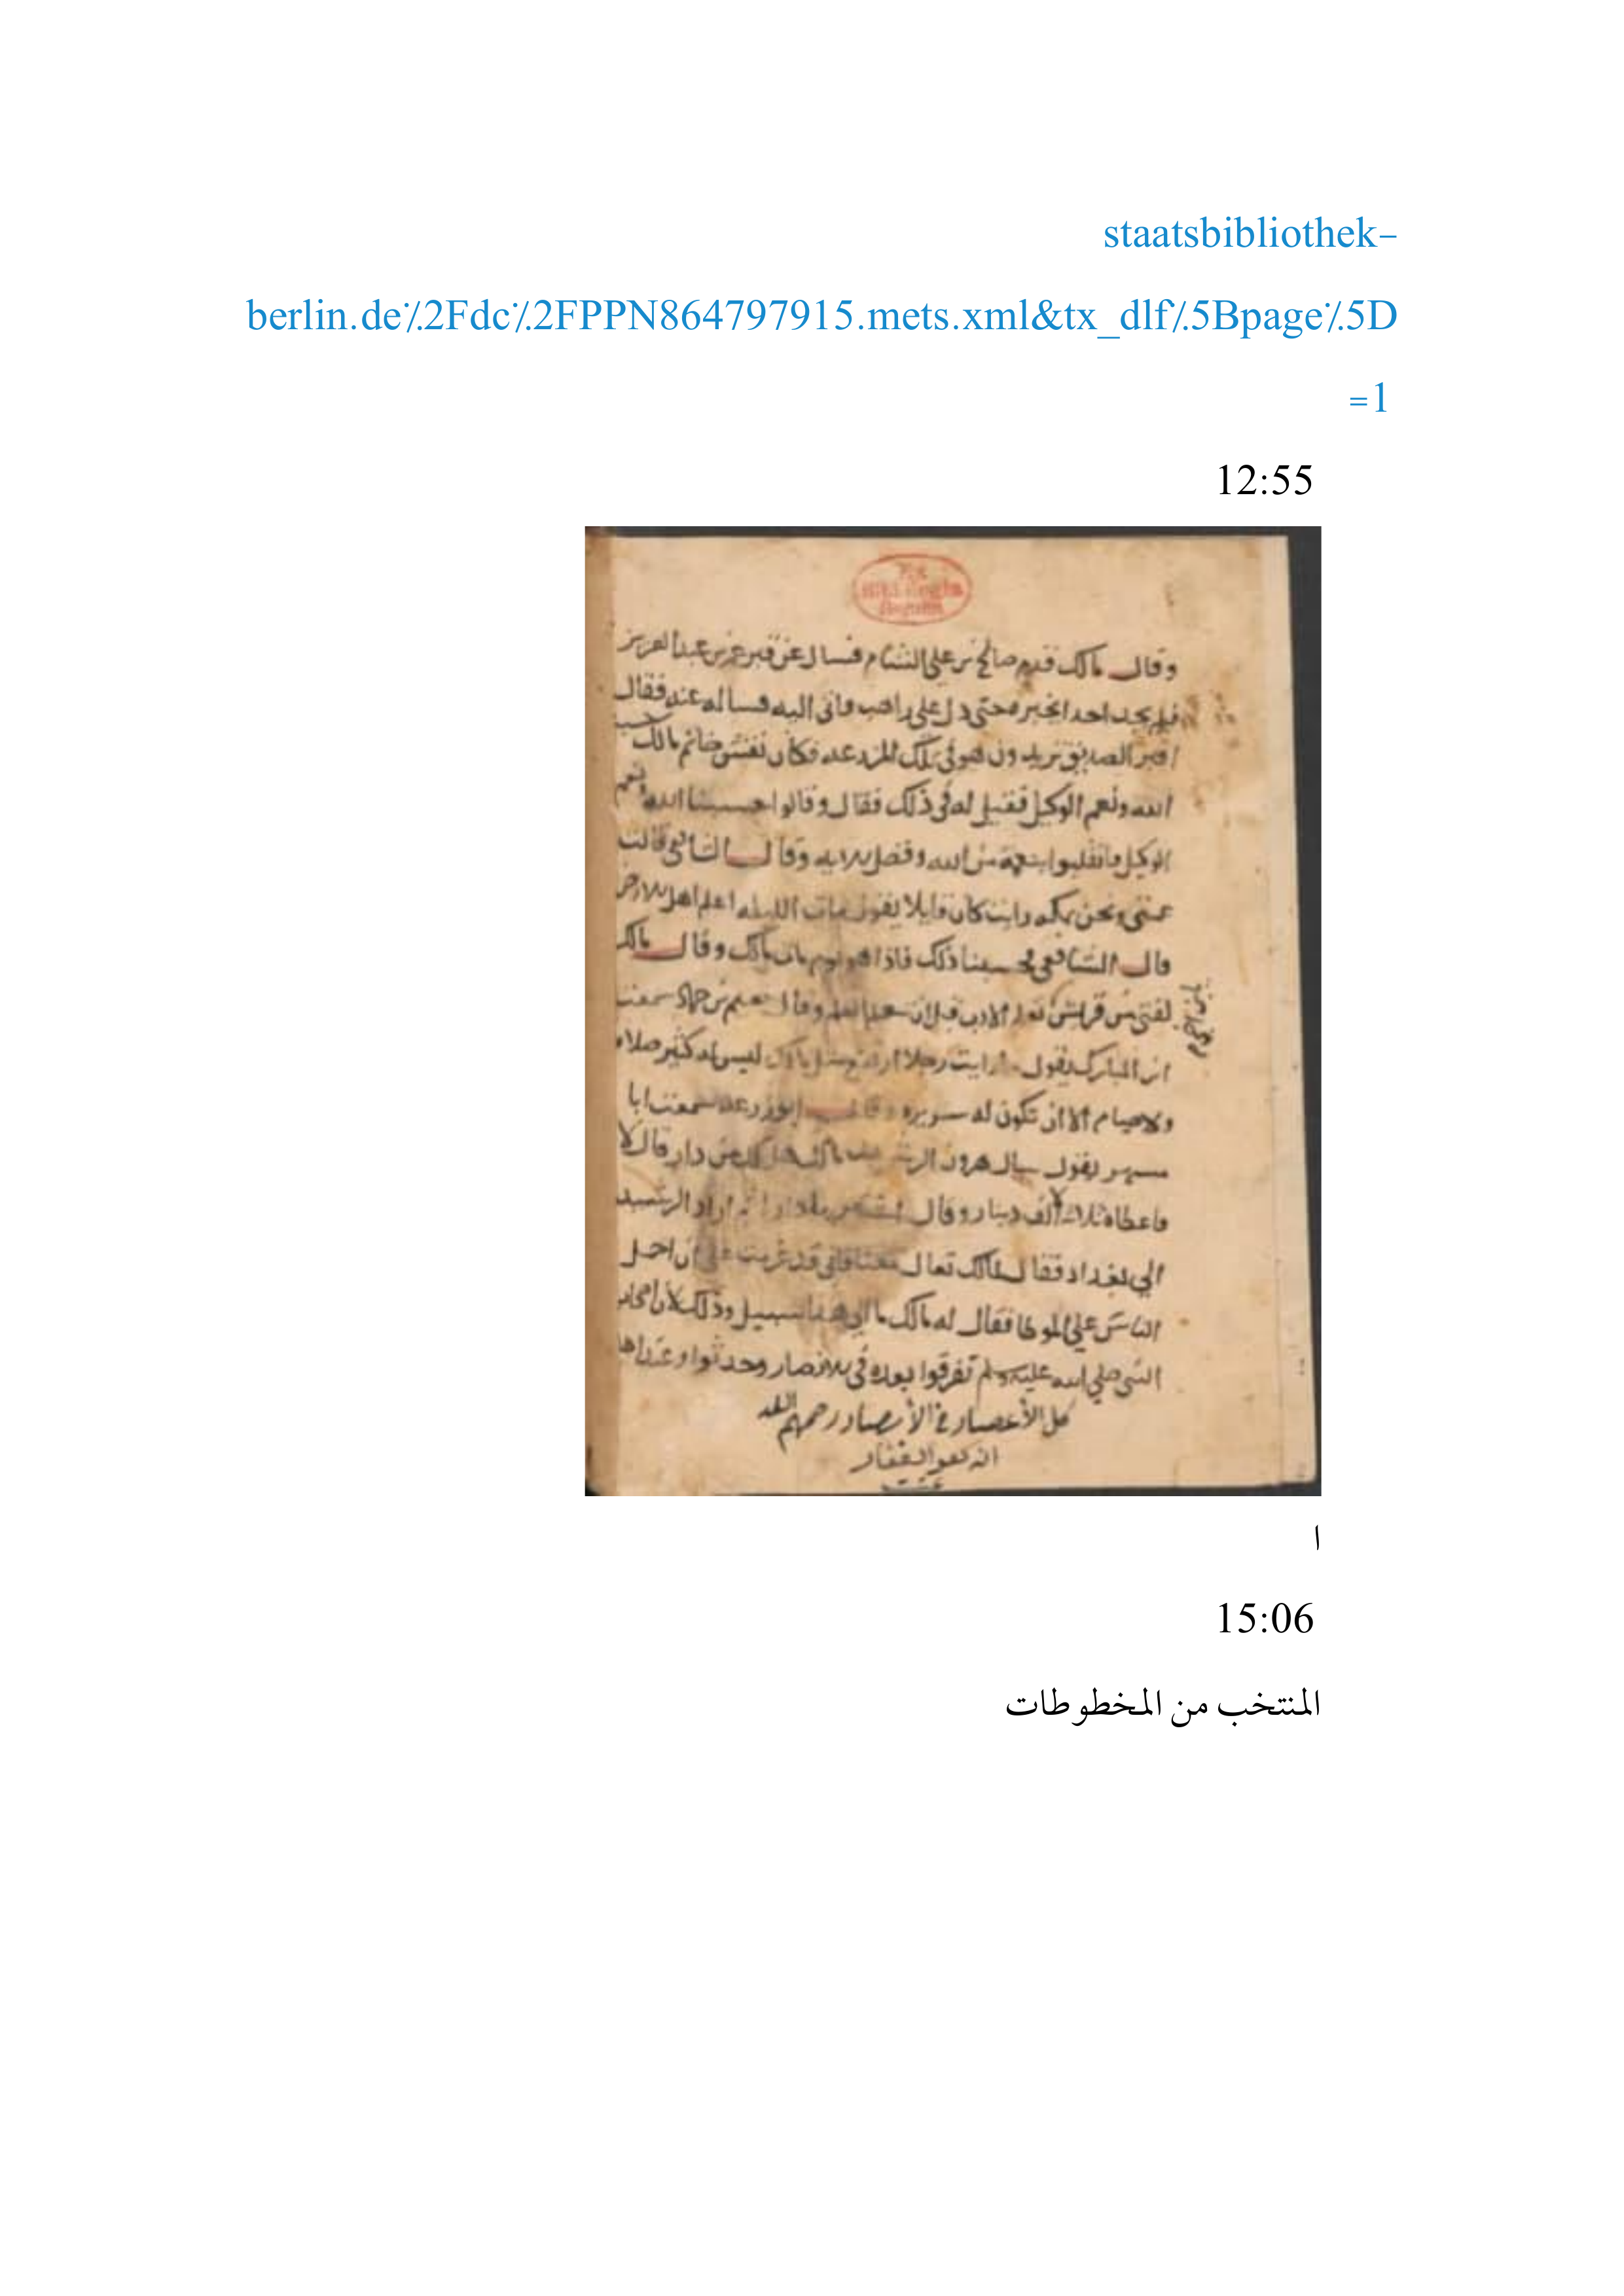 staatsbibliothek-
berlin.de٪2Fdc٪2FPPN864797915.mets.xml&tx_dlf٪5Bpage٪5D
=1
12:55
وقال مالك قدم صالح بن علي الشام فسال عن قبر عمر بن عبد العزيز
فلم يجد احدا يخبره حتى دل على راهب فاتى اليه فساله عنه فقال
اقبر الصديق تريدون هو في تلك المزرعه فكان نقش خاتم مالك حسبي
الله ونعم الوكيل فقيل له في ذلك فقال وقالوا حسبنا الله ونعم
الوكيل فانقلبوا بنعمة من الله وفضل الايه وقال الشافعي قالت
عمتي ونحن بمكه رايت كان قايلا يقول مات الليله اعلم اهل الارض
قال الشافعي فحسبنا ذلك فاذا هو يوم مات مالك وقال مالك
لفتى من قريش تعلم الادب قبل ان تتعلم العلم وقال نعيم بن حماد سمعت
ابن المبارك يقول ما رايت رجلا ارتفع مثل مالك ليس له كثير صلاه
ولا صيام الا ان تكون له سريره وقال ابو زرعه سمعت ابا
مسهر يقول سال هرون الرشيد مالك هل لك من دار قال لا
فاعطاه ثلاثة آلاف دينار وقال اشتر بها دارا ثم اراد الرشيد
الي بغداد فقال لمالك تعال معنا فاني قد عزمت على ان احمل
الناس علي الموطا فقال له مالك ما الي هذا سبيل وذلك لان اصحاب
النبي صلي الله عليه وسلم تفرقوا بعده في الامصار وحدثوا وعند اهل
كل الأعصار في الأمصار رحمهم الله
انه هو الغفار
ا
15:06
المنتخب من المخطوطات